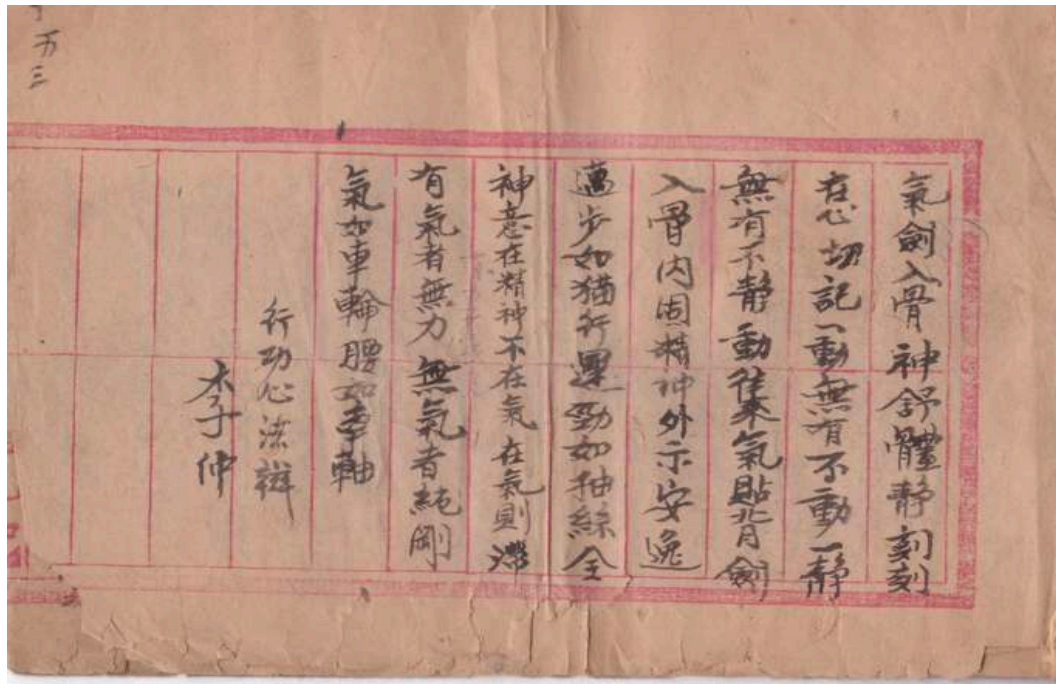 氣劍入骨 神舒體静刻刻
在心切記一動無有不動一静
無有不静動往來氣貼背劍
入骨内固精神外示安逸
邁步如猫行運勁如抽絲全
神意在精神不在氣 在氣則滯
有氣者無力 無氣者純剛
氣如車輪腰如車軸
行功心法
李仲
万三